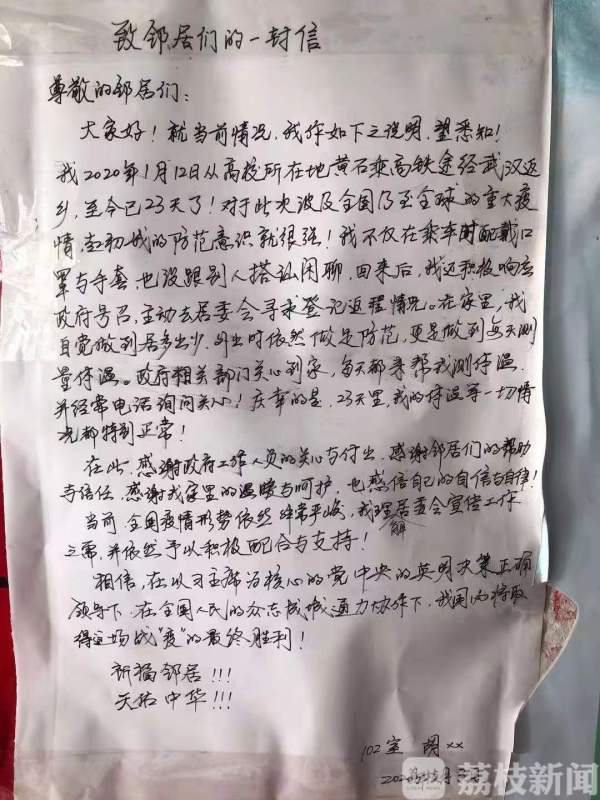 致邻居们的一封信
尊敬的邻居们：
大家好！就当前情况，我作如下之说明，望悉知！
我2020年1月12日从高校所在地黄石乘高铁途经武汉返
乡，至今已23天了！对于此次波及全国乃至全球的重大疫
情，起初我的防范意识就很强！我不仅在乘车时配戴口
罩与手套，也没跟别人搭讪闲聊，回来后，我还积极响应
政府号召，主动去居委会寻求登记返程情况。在家里，我
自觉做到居多出少，外出时依然做足防范，更是做到每天测
量体温。政府相关部门关心到家，每天都来帮我测体温，
并经常电话询问关心！庆幸的是，23天里，我的体温等一切情
况都特别正常！
在此，感谢政府工作人员的关心与付出，感谢邻居们的帮助
与信任，感谢我家里的温暖与呵护，也感信自己的自信与自律！
当前，全国疫情形势依然非常严峻，我理解居委会宣传工作
之需，并依然予以积极配合与支持！
相信，在以习主席为核心的党中央的英明决策正确
领导下，在全国人民的众志成城通力协作下，我国必将取
得这场战“疫”的最终胜利！
祈福邻居！！！
天佑中华！！！
102室 周××
荔枝新闻